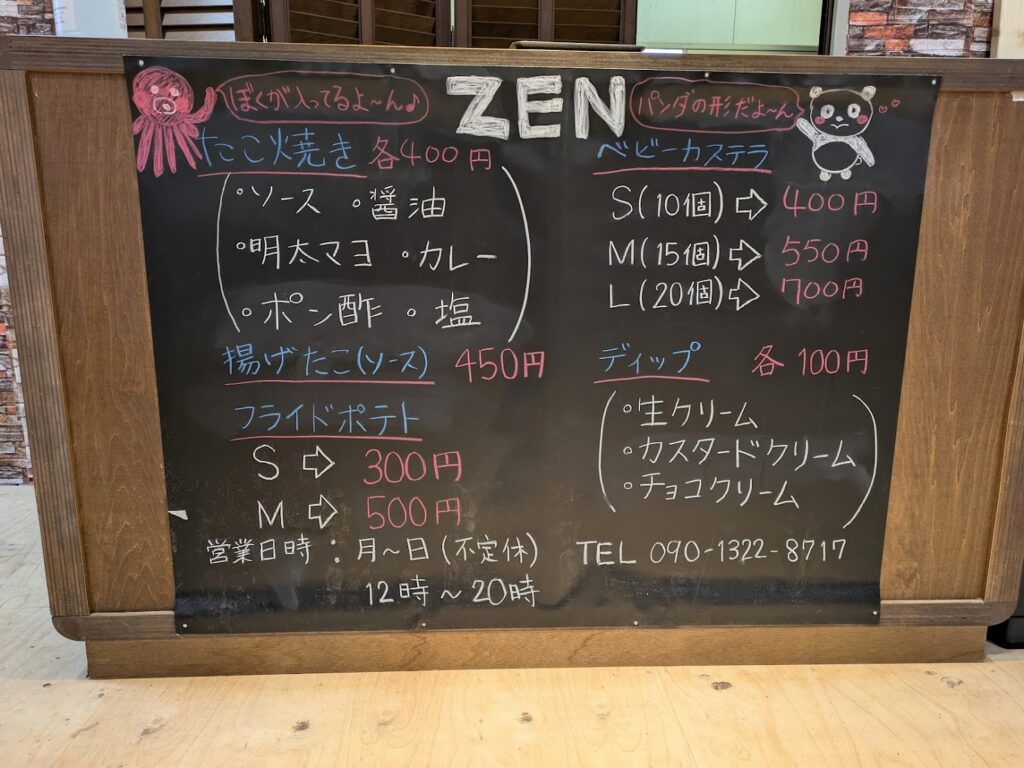 ZEN
ぼくが入ってるよ〜ん♪
たこ焼き 各400円
・ソース ・醤油
・明太マヨ ・カレー
・ポン酢 ・塩
揚げたこ(ソース) 450円
フライドポテト
S ⇨ 300円
M ⇨ 500円
営業日時：月〜日(不定休)
12時〜20時
パンダの形だよ〜ん
ベビーカステラ
S(10個)⇨ 400円
M(15個)⇨ 550円
L(20個)⇨ 700円
ディップ 各100円
・生クリーム
・カスタードクリーム
・チョコクリーム
TEL 090-1322-8717